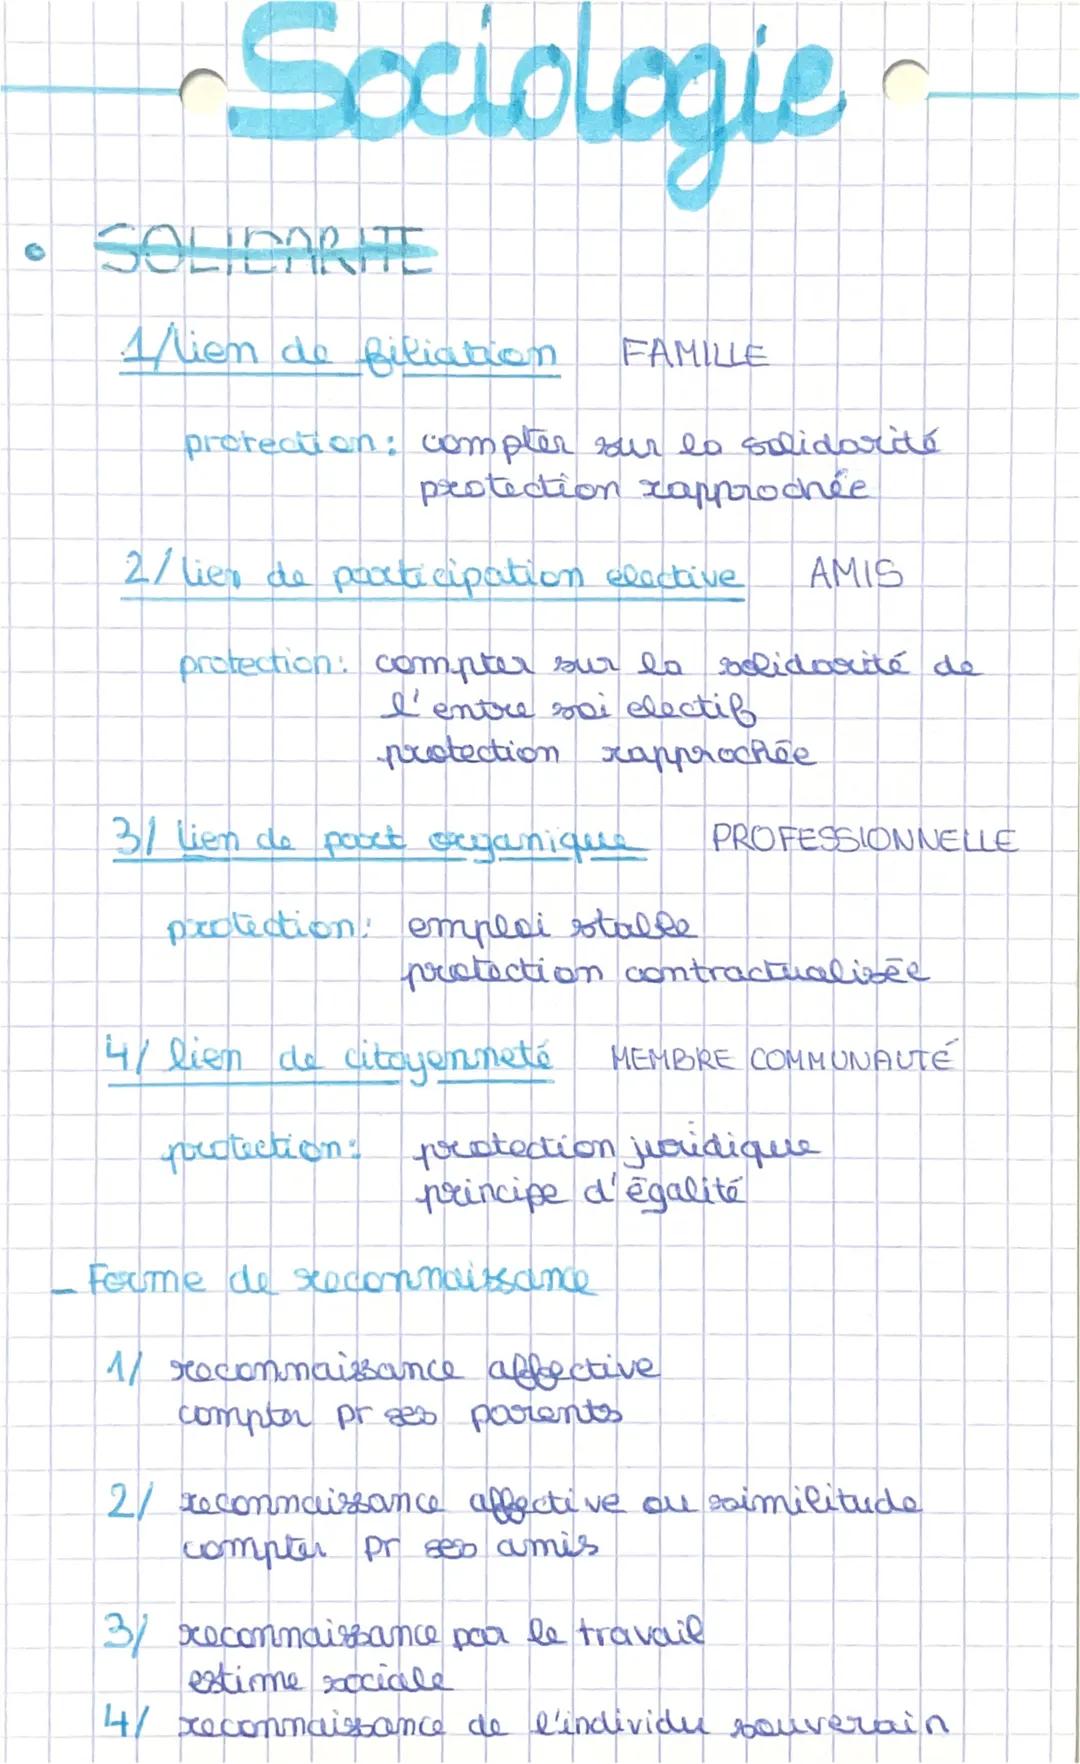 Sociologie
SOLIDARITE
1/ lien de filiation FAMILLE
protection: compter sur la solidarité
protection rapprochée
2/ lien de participation elective AMIS
protection: compter sur la solidarité de
l'entre soi electif
protection rapprochée
3/ lien de part organique PROFESSIONNELLE
protection: emploi stable
protection contractualisée
4/ lien de citoyenneté MEMBRE COMMUNAUTÉ
protection: protection juridique
principe d'égalité
- Forme de reconnaissance
1/ reconnaissance affective
compter pr ses parents
2/ reconnaissance affective ou similitude
compter pr ses amis
3/ reconnaissance par le travail
estime sociale
4/ reconnaissance de l'individu souverain